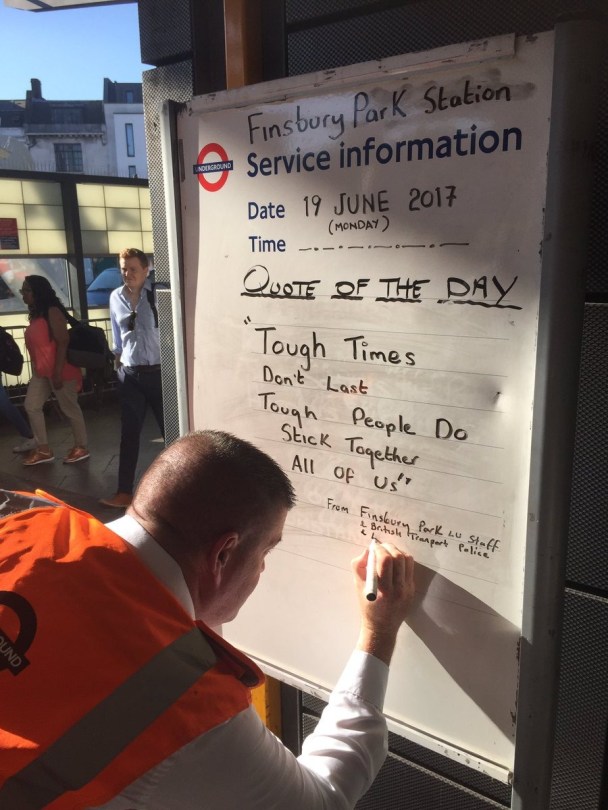 Finsbury Park Station
UNDERGROUND
Service information
Date 19 JUNE 2017
(MONDAY)
Time
QUOTE OF THE DAY
"Tough Times
Don't Last
Tough People Do
Stick Together
All of Us"
From Finsbury Park LU Staff
& British Transport Police
&
OUND